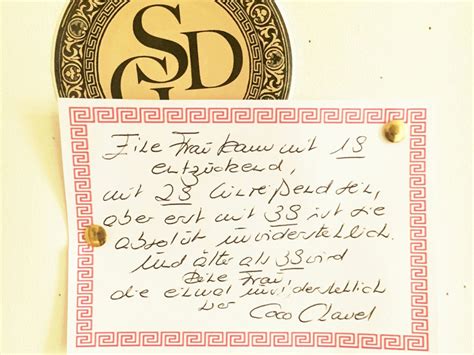 SD
G
Eine Frau kann mit 19
entzückend,
mit 29 hinreißend sein,
aber erst mit 39 ist sie
absolut unwiderstehlich.
Und älter als 39 wird
keine Frau,
die einmal unwiderstehlich
war Coco Chanel